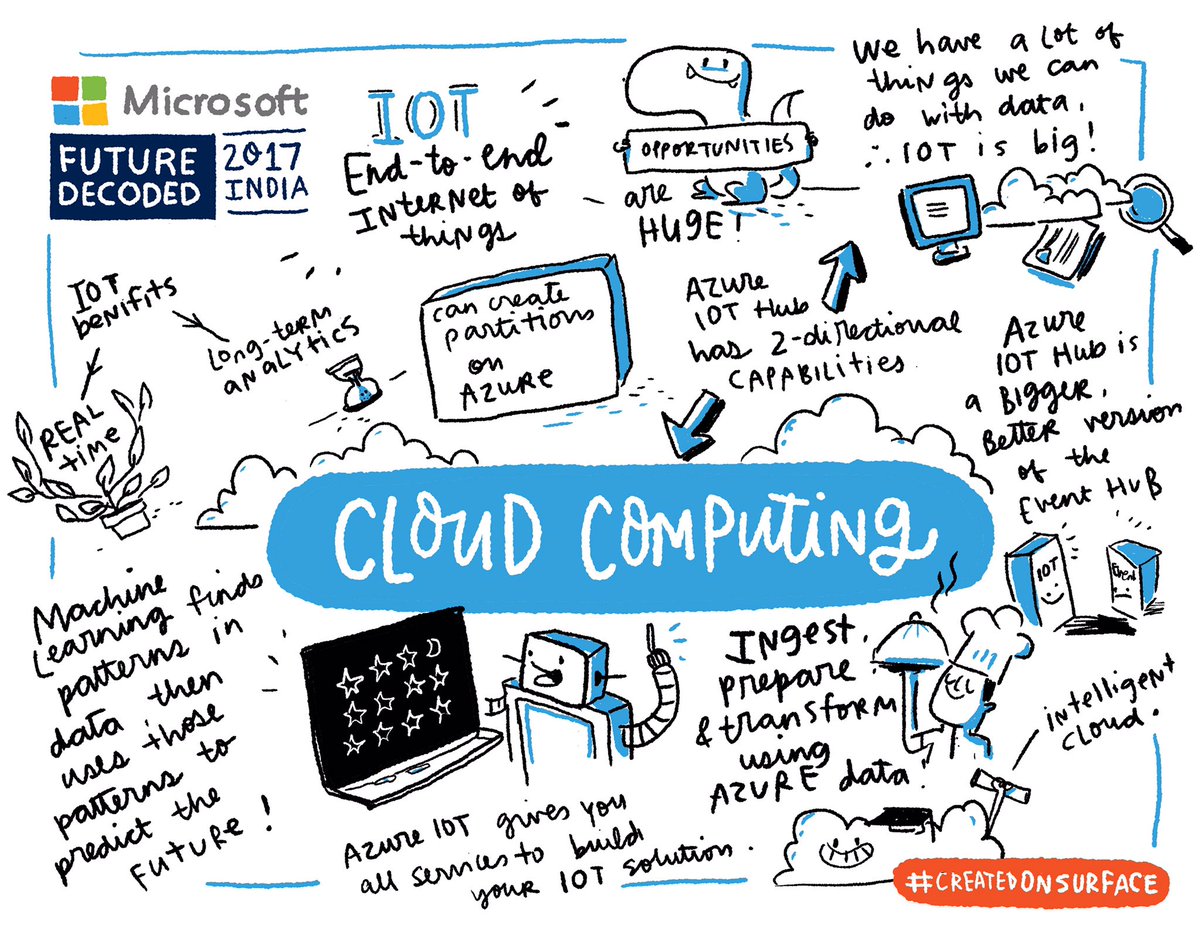 Microsoft
FUTURE
DECODED
2017
INDIA
IOT
End-to-end
Internet of
things
OPPORTUNITIES
are
HUGE!
We have a lot of
things we can
do with data.
∴ IOT is big!
IOT
benifits
Long-term
analytics
REAL
time
can create
partitions
on
AZURE
Azure
IOT Hub
has 2-directional
CAPABILITIES
Azure
IOT Hub is
a BIGGER,
Better version
of the
Event HUB
IOT
Event
CLOUD COMPUTING
Machine
Learning finds
patterns in
data then
uses those
patterns to
predict the
future!
Azure IOT gives you
all services to build
your IOT solution.
Ingest,
prepare
& transform
using
AZURE data!
intelligent
cloud.
#CREATEDONSURFACE